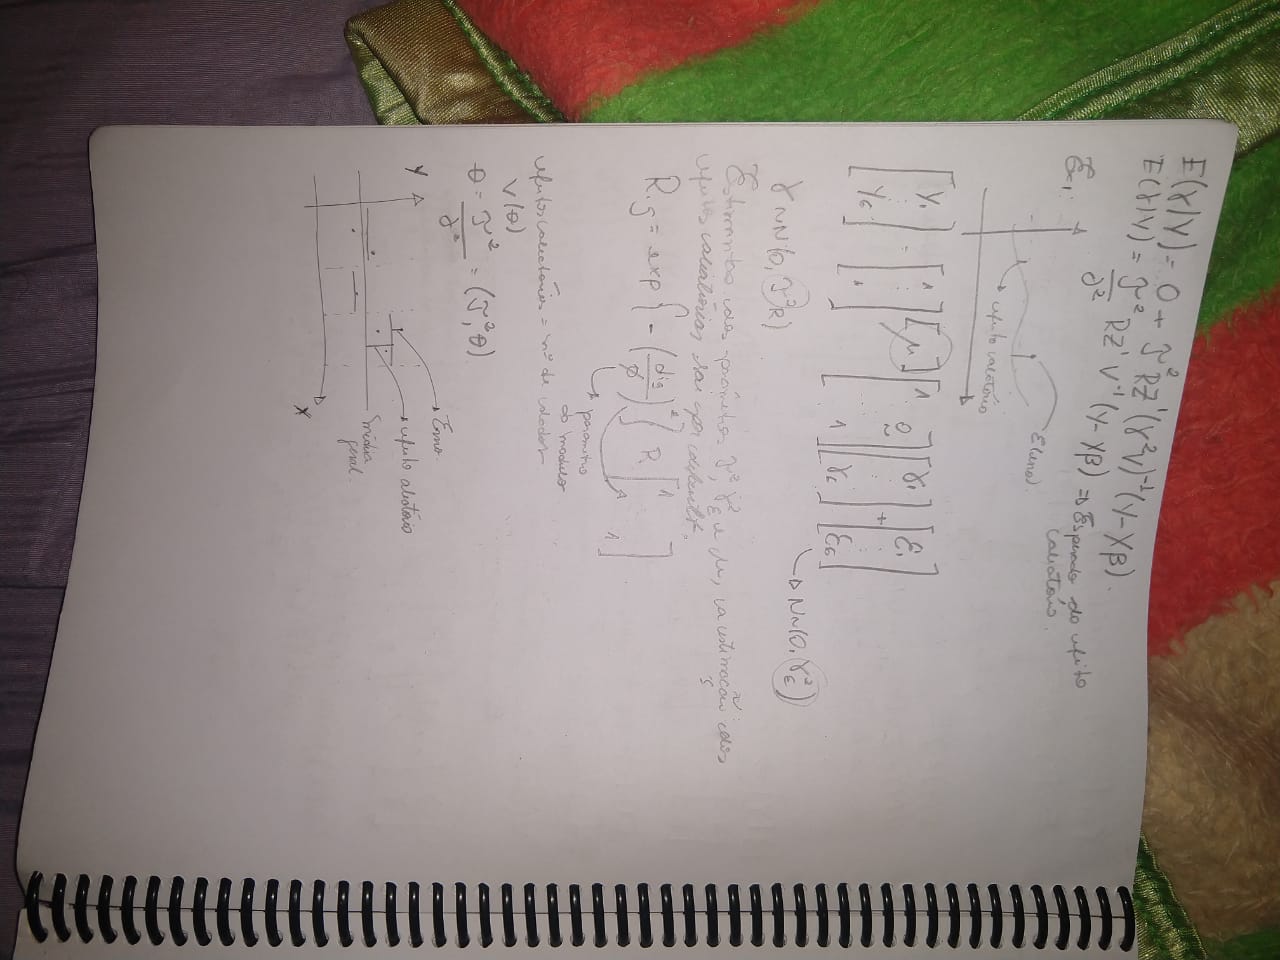 E(γ|Y) = 0 + τ² RZ' (γ²V)⁻¹ (Y - Xβ).
E(γ|Y) = τ²/σ² RZ' V⁻¹ (Y - Xβ) ⇒ Esperado do efeito aleatório.
Ex₁:
E(erro).
efeito aleatório
[Y₁ ⋮ Y₆] = [1 ⋮ 1] [μ] [1 0 ⋱ 1] [γ₁ ⋮ γ₆] + [ε₁ ⋮ ε₆]
→ N~(0, γ²ε)
γ ~ N(0, τ²R)
Estimando dos parâmetros τ², γ²ε e μ, a estimação dos
efeitos aleatórios sai por default.
R.g = exp{-(dig/φ)²} R [1 1]
parâmetro
do modelo
efeitos aleatórios = nº de
V(θ)
θ = τ²/σ² = (τ², θ)
Erro
Y
efeito aleatório
média
geral.
X